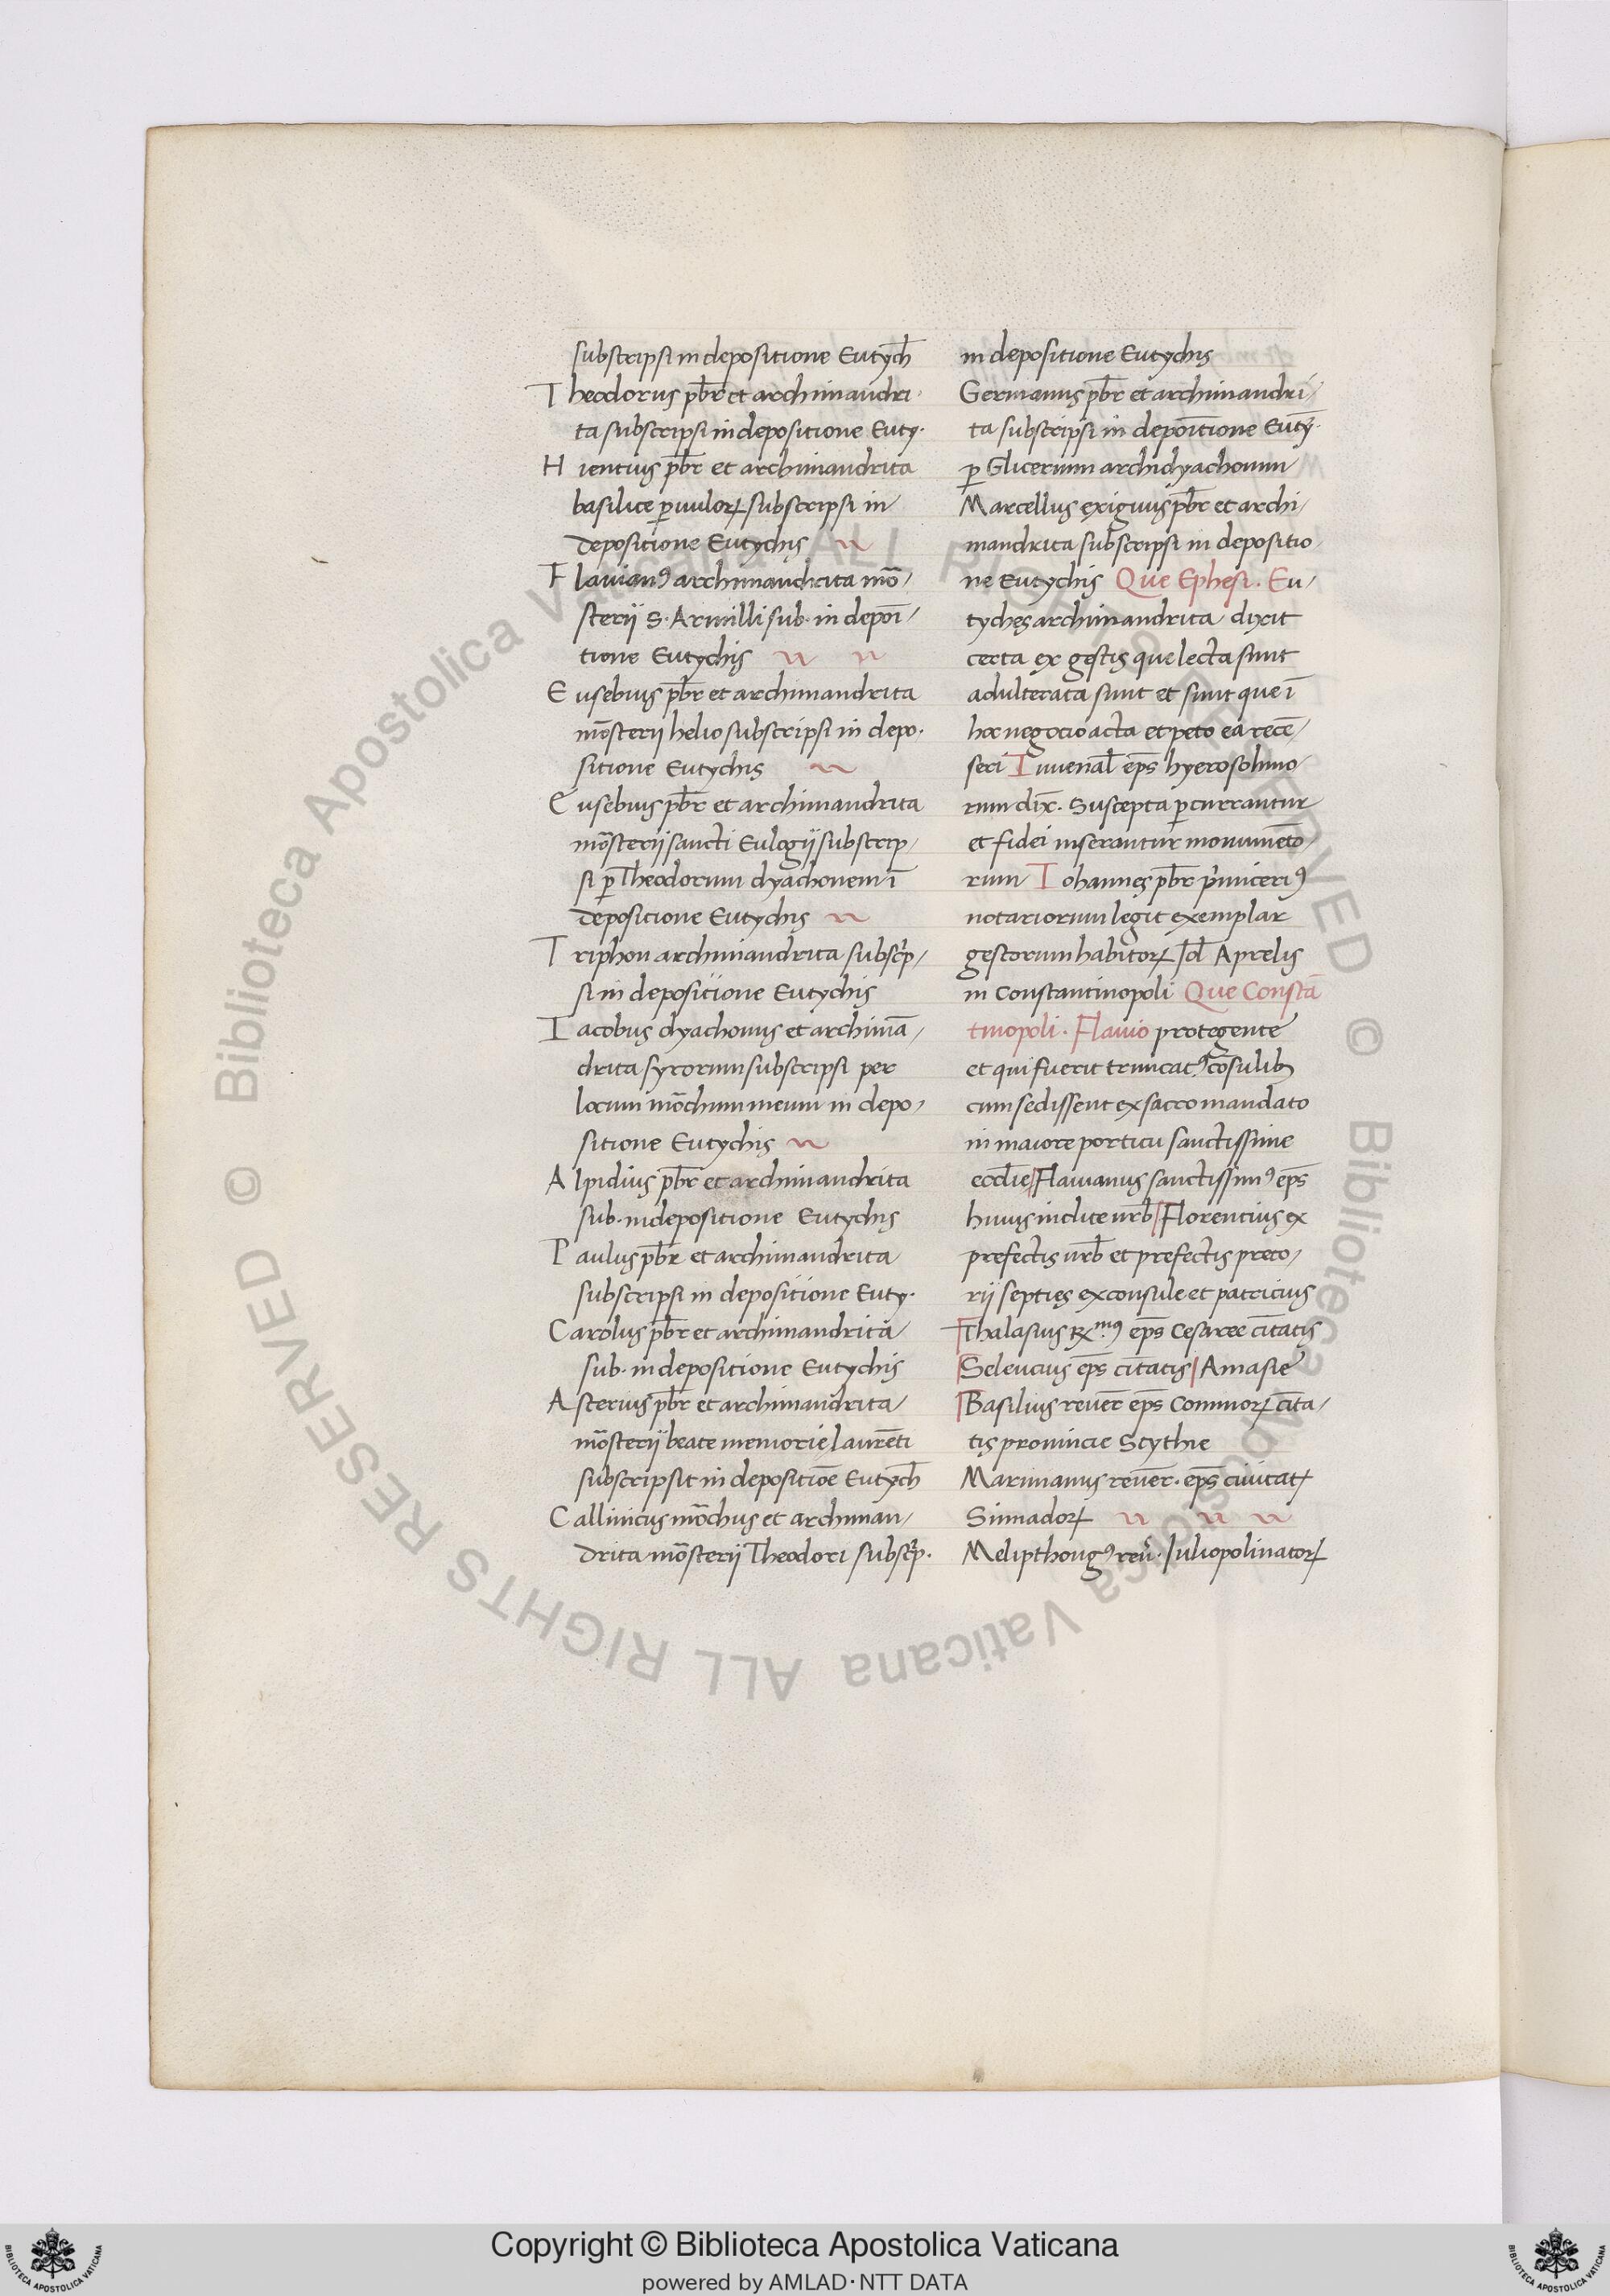 subscripsi in depositione Eutych̄
Theodorus pb̄r et archimandri
ta subscripsi in depositione Euty.
Hientius pb̄r et archimandrita
basilice ꝑuuloꝝ subscripsi in
depositione Eutychis
Flavianꝰ archimandrita mō/
sterij S. Armilli sub. in depoī/
tione Eutychis
Eusebius pb̄r et archimandrita
mōsterij helio subscripsi in depo.
sitione Eutychis
Eusebius pb̄r et archimandrita
mōsterij sancti Eulogij subscrip/
si ꝑ Theodorum dyachonem ī
depositione Eutychis
Triphon archimandrita subsc̄p/
si in depositione Eutychis
Iacobus dyachonus et archimā/
drita syrorum subscripsi per
locum mōchum meum in depo/
sitione Eutychis
Alpidius pb̄r et archimandrita
sub. in depositione Eutychis
Paulus pb̄r et archimandrita
subscripsi in depositione Euty.
Carolus pb̄r et archimandrita
sub. in depositione Eutychis
Asterius pb̄r et archimandrita
mōsterij beate memorie laurēti
subscripsit in depositiōe Eutych̄
Callinicus mōchus et archiman/
drita mōsterij Theodori subsc̄p.
in depositione Eutychis
Germanus pb̄r et archimandri/
ta subscripsi in depoītione Euty.
ꝑ Glicerium archidyachonum
Marcellus exiguus pb̄r et archi/
mandrita subscripsi in depositio
ne Eutychis Que Ephesi. Eu/
tyches archimandrita dixit
certa ex gestis que lecta sunt
adulterata sunt et sunt que ī
hoc negocio acta et peto ea recē/
seri Iuuenal̄ ep̄s hyerosolimo/
rum dix̄. Suscepta ꝑcurrantur
et fidei inserantur monumēto/
rum Iohannes pb̄r p̄miceriꝰ
notariorum legit exemplar
gestorum habitoꝝ Id̄ Aprelis
in Constantinopoli Que Constā
tinopoli. Flauio protegente
et qui fuerit truncatꝰ cōsulibꝫ
cum sedissent ex sacro mandato
in maiore porticu sanctissime
eccl̄ie Flauianus sanctissimꝰ ep̄s
huius inclite urb̄ Florentius ex
prefectis urb̄ et prefectis preto/
rij septies exconsule et patricius
Thalasius Rx̄.mꝰ ep̄s Cesaree ciūtatis
Seleucius ep̄s ciūtatis Amasie
Basilius reuer̄ ep̄s Commoꝝ ciūta/
tis prouincie Scythie
Marinianus reuer̄. ep̄s ciuitatꝭ
Sinnadoꝝ
Melipthongꝰ reū. Iuliopolinatoꝝ
© Biblioteca Apostolica Vaticana ALL RIGHTS RESERVED
© Biblioteca Apostolica Vaticana ALL RIGHTS RESERVED
BIBLIOTECA APOSTOLICA VATICANA
Copyright © Biblioteca Apostolica Vaticana
powered by AMLAD·NTT DATA
BIBLIOTECA APOSTOLICA VATICANA